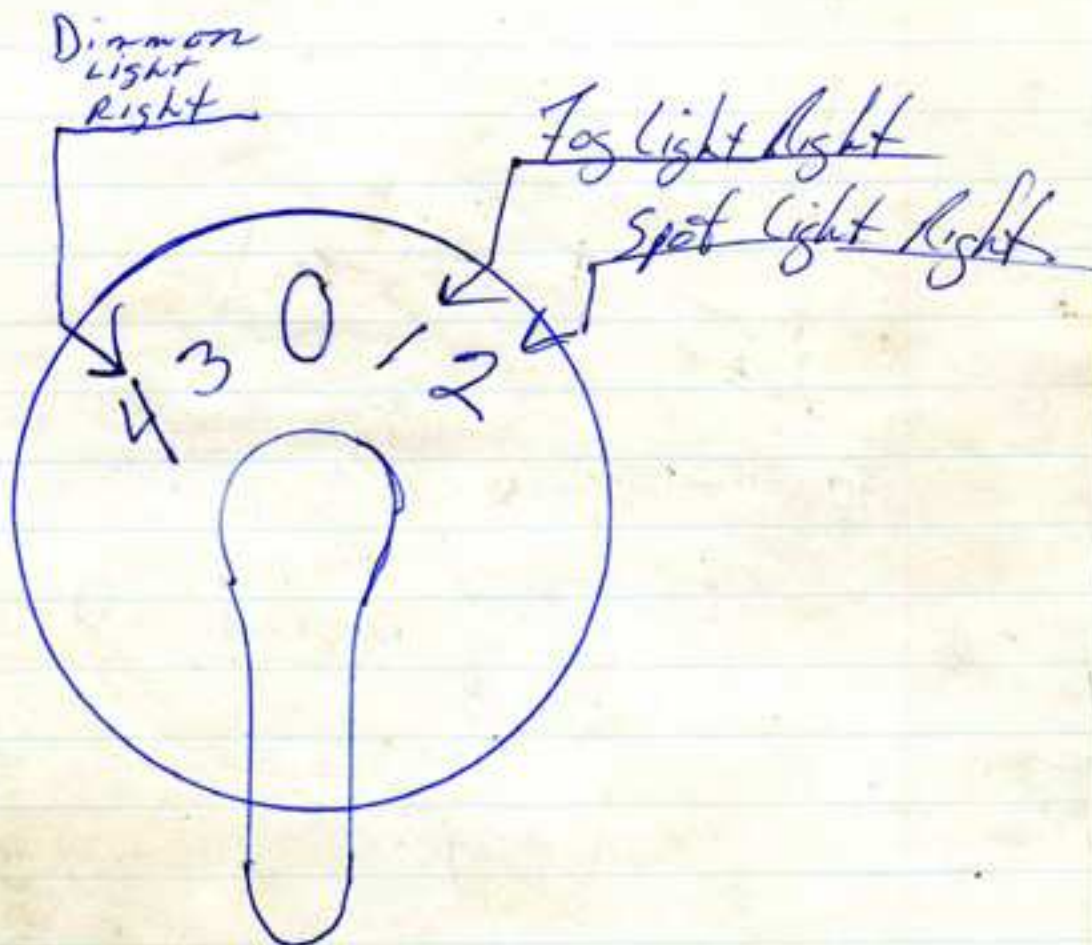 Dimmer
Light
Right
Fog Light Right
Spot Light Right
4 3 0 1 2